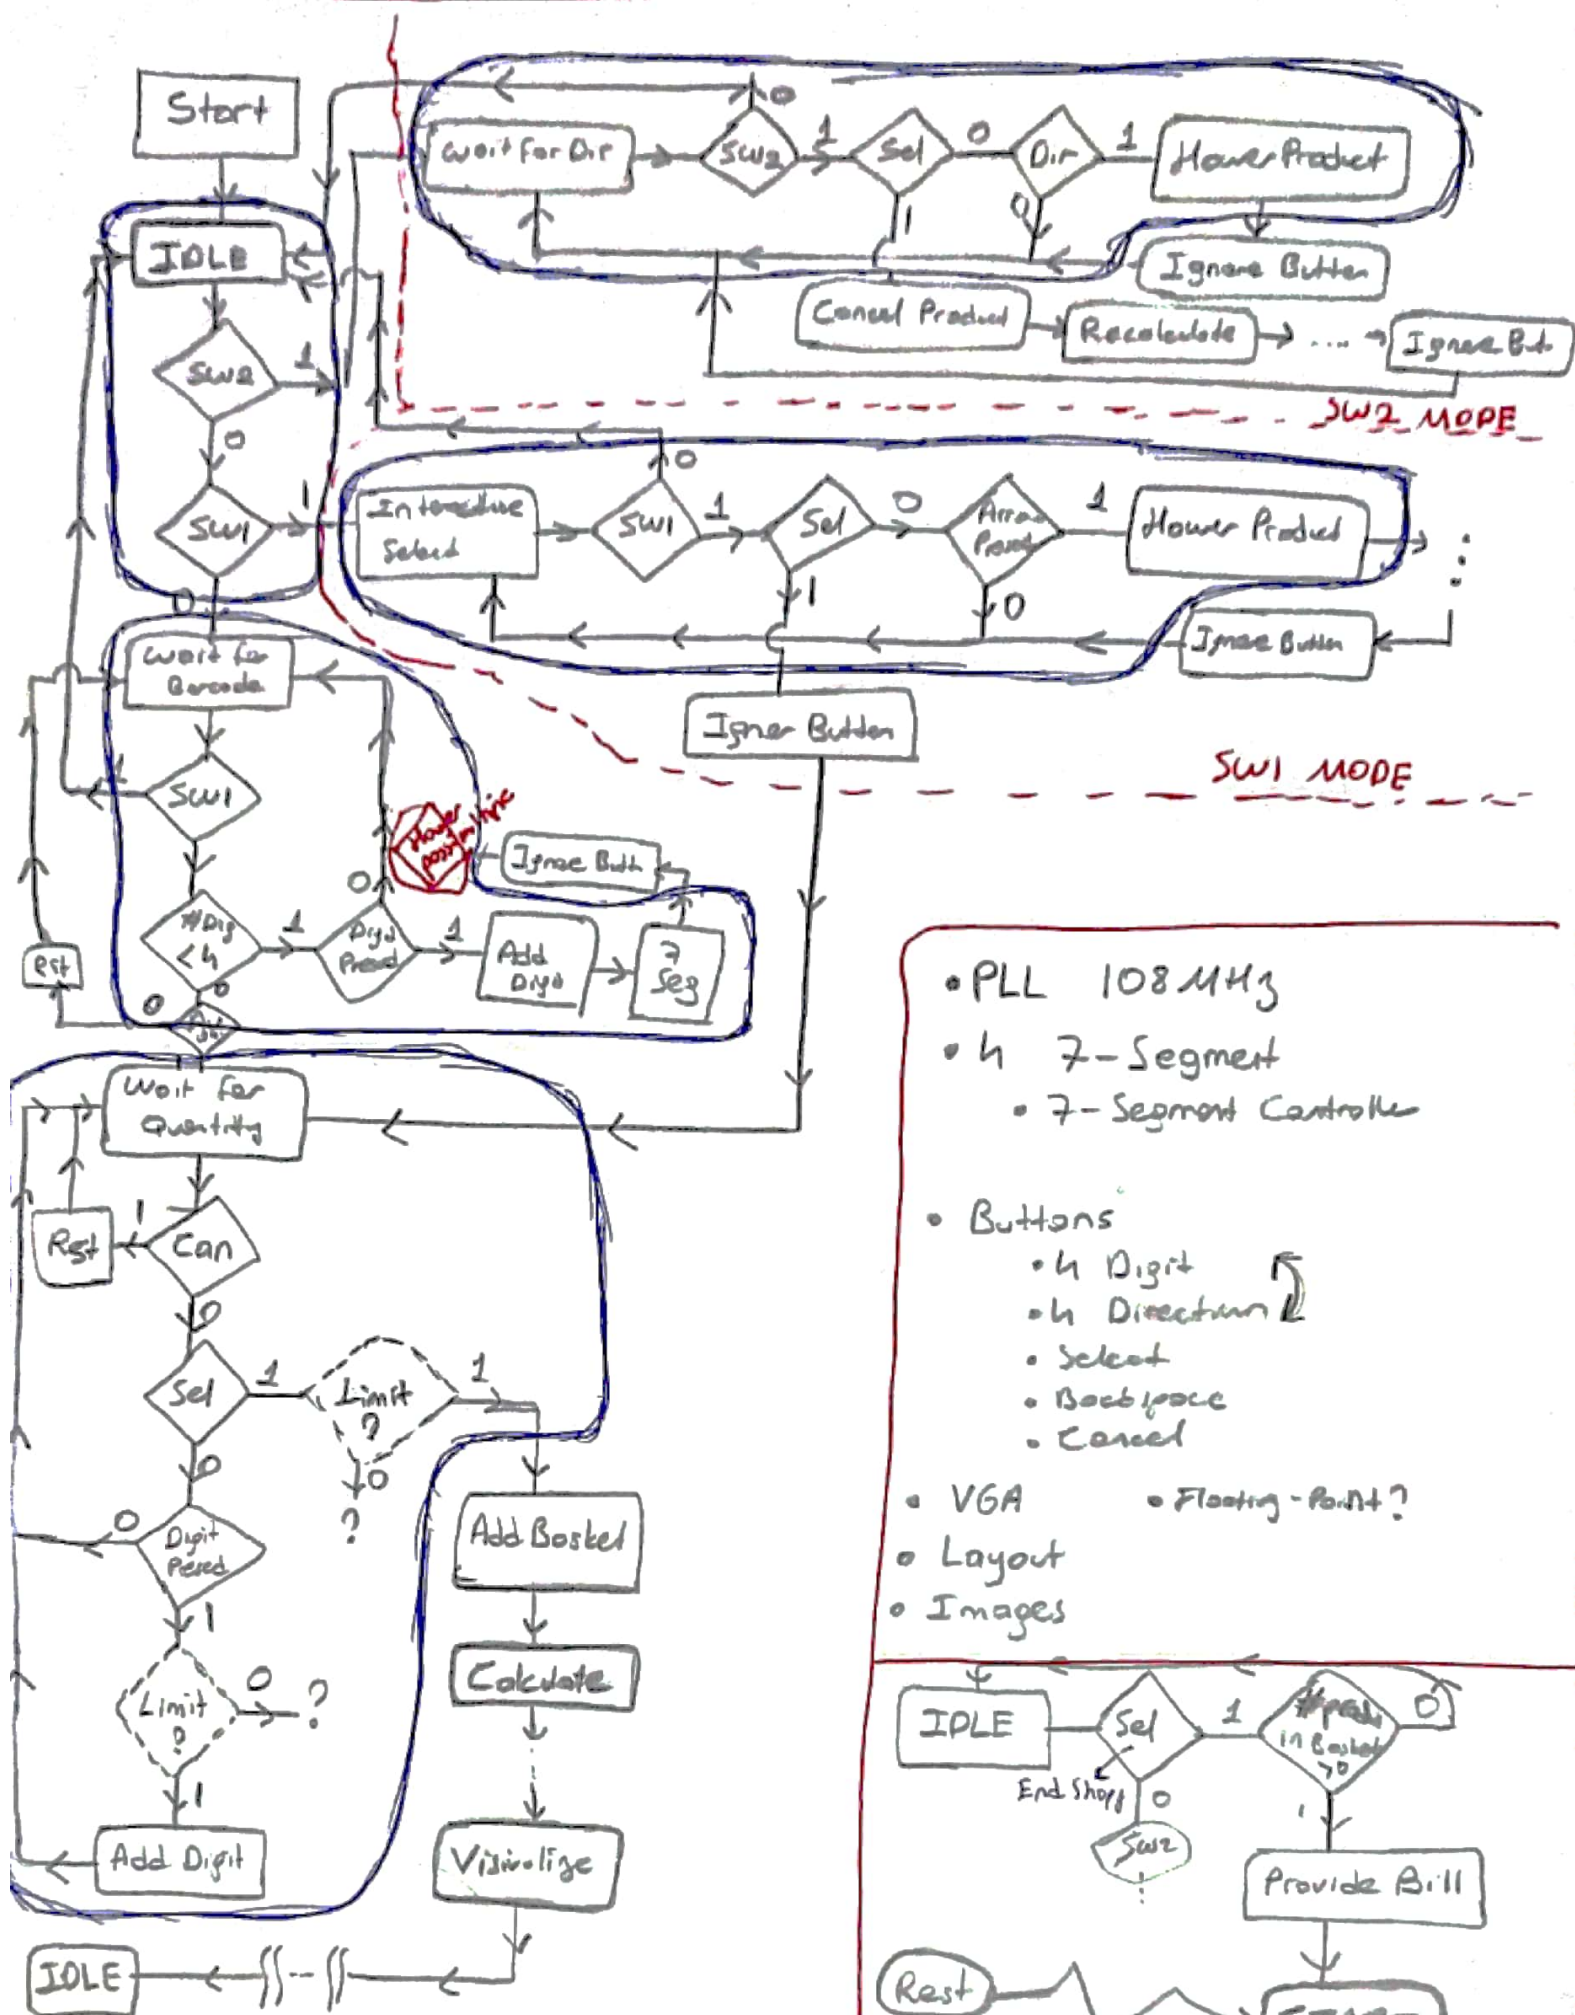 Start
IDLE
SW2
1
0
SW1
1
0
Wait for Dir
SW2
0
1
Sel
0
1
Dir
1
0
Hower Product
Ignore Button
Cancel Product
Recalculate
....
Ignore But.
SW2 MODE
Interactive
Select
SW1
0
1
Sel
0
1
Arrow
Presed
1
0
Hower Product
Ignore Button
Igner Button
SW1 MODE
Wait for
Barcode
SW1
1
#Dig
<4
1
0
Digit
Presed
0
1
Add
Digit
7
Seg
Ignore Buttn
Hower
0
Wait for
Quantity
Can
1
Rst
0
Sel
1
0
Limit
?
1
0
?
Digit
Presed
0
1
Limit
?
0
?
1
Add Digit
Add Basket
Calculate
Visivalize
IDLE
• PLL 108 MHz
• 4 7-Segment
• 7-Segment Controller
• Buttons
• 4 Digit
• 4 Direction
• Select
• Backspace
• Cancel
• VGA
• Floating-Point?
• Layout
• Images
IDLE
Sel
1
0
End Shopp
SW2
in Basket
>0
0
1
Provide Bill
Rest